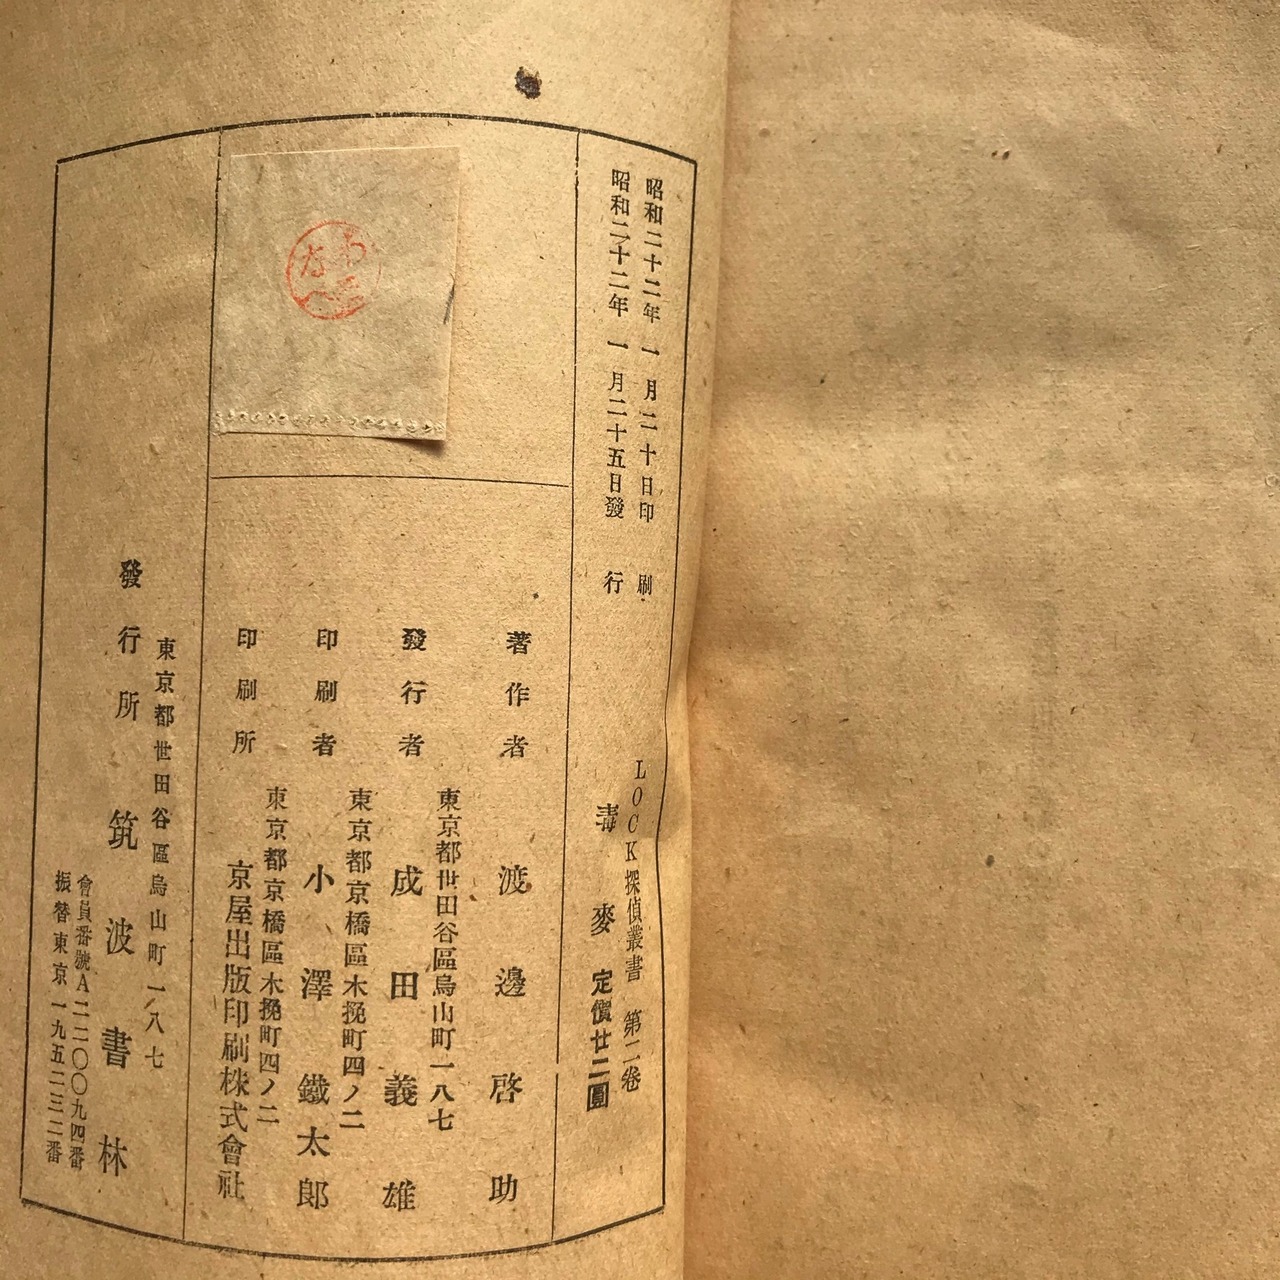 昭和二十二年一月二十日印刷
昭和二十二年一月二十五日發行
LOCK探偵叢書 第二卷
毒麥 定價廿二圓
著作者 渡邊啓助
東京都世田谷區烏山町一八七
發行者 成田義雄
東京都京橋區木挽町四ノ二
印刷者 小澤鐵太郎
東京都京橋區木挽町四ノ二
印刷所 京屋出版印刷株式會社
東京都世田谷區烏山町一八七
發行所 筑波書林
會員番號A二二〇〇九四番
振替東京一九五二三二番